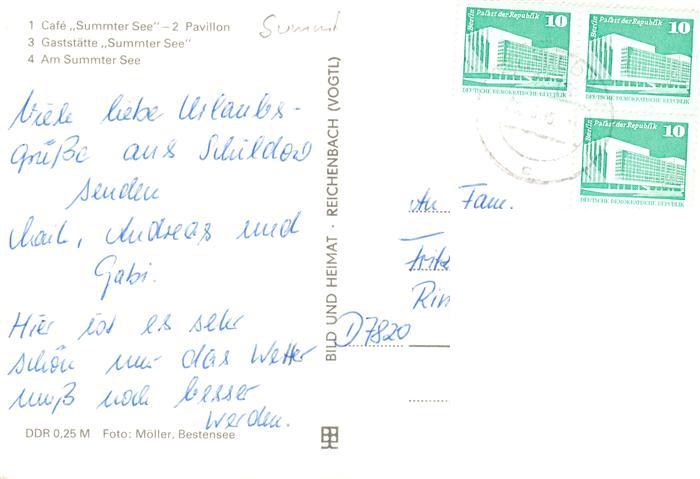 1 Café „Summter See" – 2 Pavillon
3 Gaststätte „Summter See"
4 Am Summter See
Summt
Viele liebe Urlaubs-
grüße aus Schildow
senden
Maik, Andreas und
Gabi.
Hier ist es sehr
schön nur das Wetter
muß noch besser
werden.
DDR 0,25 M Foto: Möller, Bestensee
BILD UND HEIMAT · REICHENBACH (VOGTL)
Berlin Palast der Republik 10
DEUTSCHE DEMOKRATISCHE REPUBLIK
Berlin Palast der Republik 10
DEUTSCHE DEMOKRATISCHE REPUBLIK
Berlin Palast der Republik 10
DEUTSCHE DEMOKRATISCHE REPUBLIK
An Fam.
Fritz
Rin
D7820